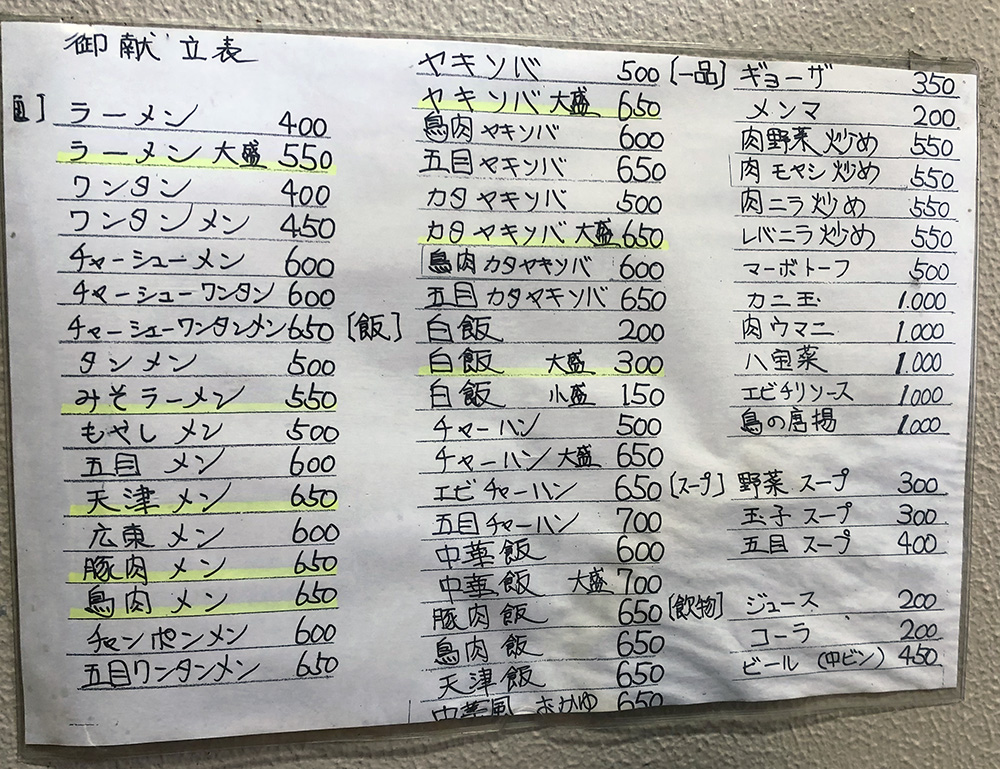 御献立表
ラーメン 400
ラーメン 大盛 550
ワンタン 400
ワンタンメン 450
チャーシューメン 600
チャーシューワンタン 600
チャーシューワンタンメン 650
タンメン 500
みそラーメン 550
もやしメン 500
五目メン 600
天津メン 650
広東メン 600
豚肉メン 650
鳥肉メン 650
チャンポンメン 600
五目ワンタンメン 650
ヤキソバ 500
ヤキソバ 大盛 650
鳥肉ヤキソバ 600
五目ヤキソバ 650
カタヤキソバ 500
カタヤキソバ 大盛 650
鳥肉カタヤキソバ 600
五目カタヤキソバ 650
[飯] 白飯 200
白飯 大盛 300
白飯 小盛 150
チャーハン 500
チャーハン 大盛 650
エビチャーハン 650
五目チャーハン 700
中華飯 600
中華飯 大盛 700
豚肉飯 650
鳥肉飯 650
天津飯 650
中華風 おかゆ 650
[一品] ギョーザ 350
メンマ 200
肉野菜炒め 550
肉モヤシ炒め 550
肉ニラ炒め 550
レバニラ炒め 550
マーボトーフ 500
カニ玉 1.000
肉ウマニ 1.000
八宝菜 1.000
エビチリソース 1.000
鳥の唐揚 1.000
[スープ] 野菜スープ 300
玉子スープ 300
五目スープ 400
[飲物] ジュース 200
コーラ 200
ビール (中ビン) 450